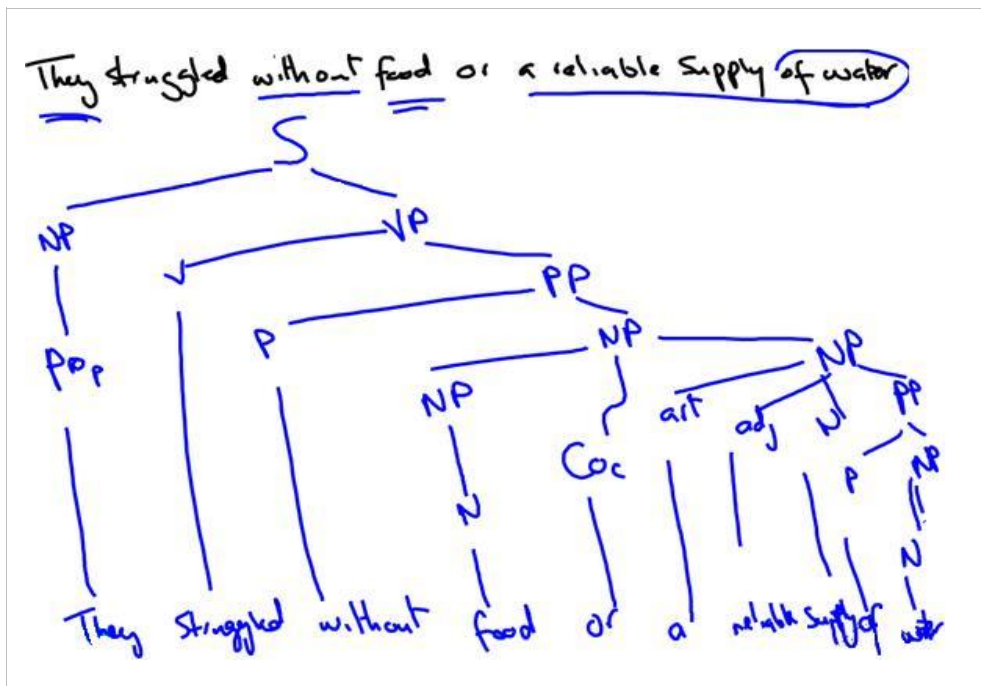 They struggled without food or a reliable supply of water
S
NP VP
V PP
P NP NP
Pop NP art adj N PP
Coc P NP
N N
They struggled without food or a reliable supply of water